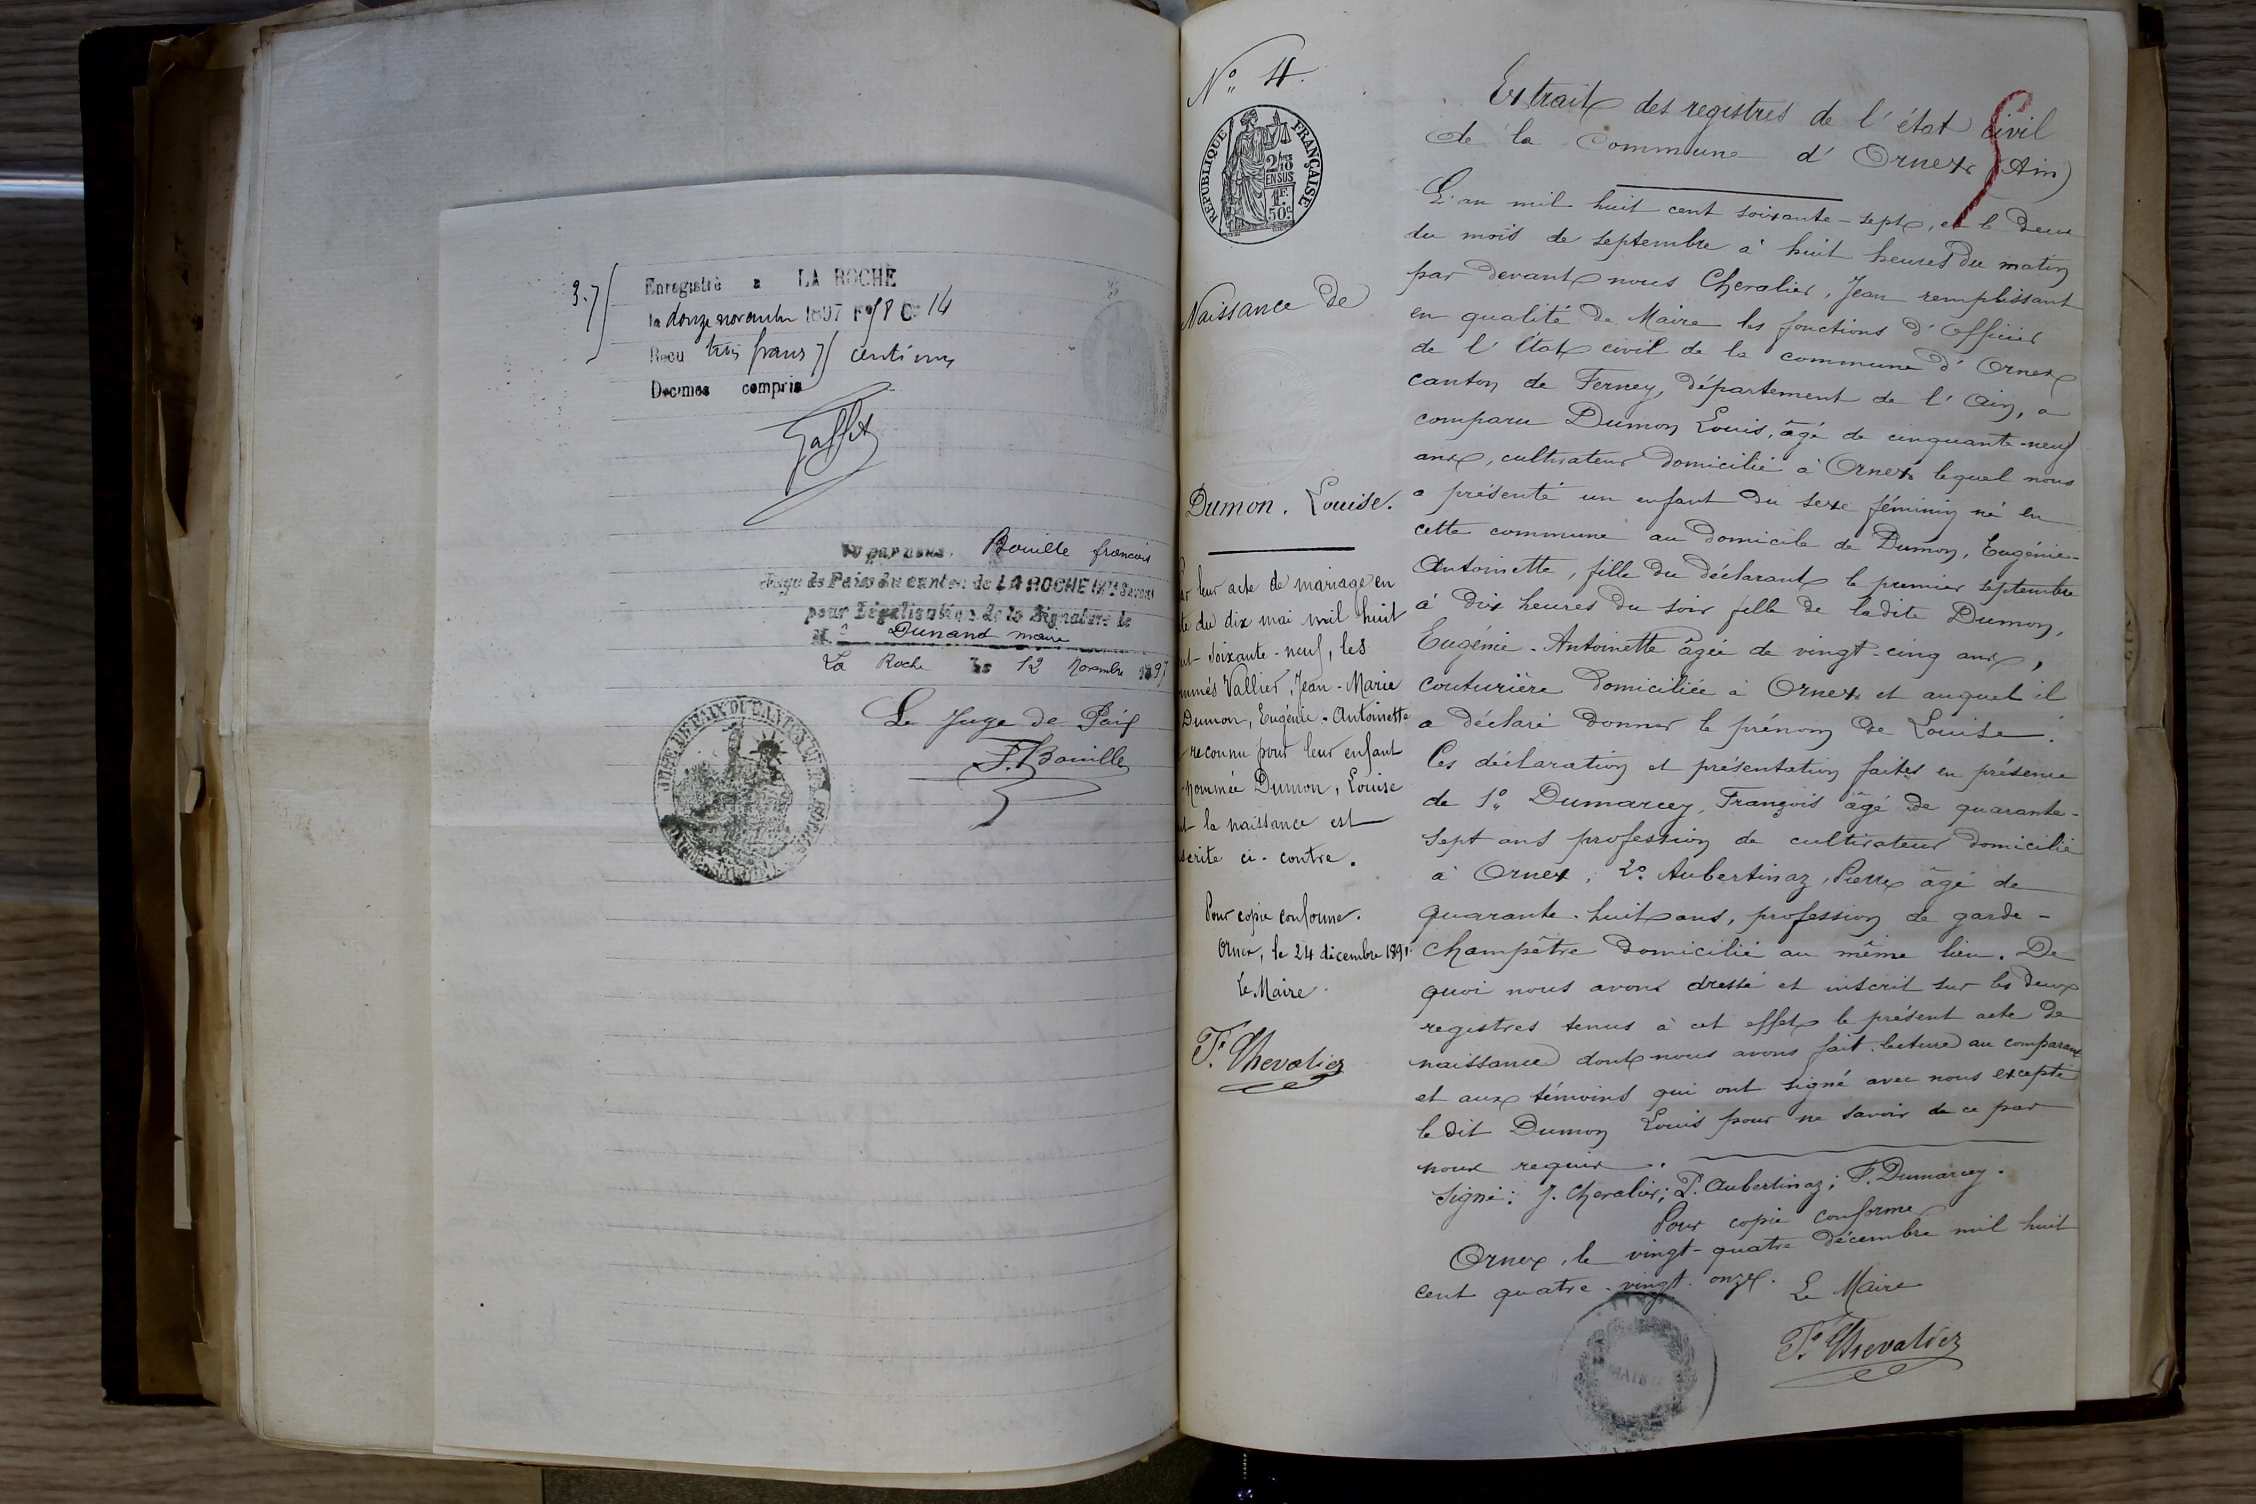 3.75
Enregistré a LA ROCHE
le douze novembre 1897 Fo 58 Co 14
Recu trois francs 75 centimes
Decimes compris
Vu par nous, Bouille francois
Juge de Paix du canton de LA ROCHE
pour Légalisation de la Signature de
M. Dunand maire
La Roche le 12 Novembre 1897
Le Juge de Paix
F. Bouille
No 4.
RÉPUBLIQUE FRANÇAISE
2/10
EN SUS
1F.
50c
Naissance de
Dumon. Louise.
leur acte de mariage en
du dix mai mil huit
soixante-neuf, les
Vallier, Jean-Marie
Dumon, Eugénie-Antoinette
reconnu pour leur enfant
nommée Dumon, Louise
la naissance est
ci-contre.
Pour copie conforme.
Ornex, le 24 décembre 1891.
Le Maire.
F. Chevalier
Extrait des registres de l'état civil
de la Commune d'Ornex (Ain)
L'an mil huit cent soixante-sept, et le deux
du mois de septembre à huit heures du matin
par devant nous Chevalier, Jean remplissant
en qualité de Maire les fonctions d'Officier
de l'Etat civil de la commune d'Ornex
canton de Ferney, département de l'Ain, a
comparu Dumon Louis, âgé de cinquante-neuf
ans, cultivateur domicilié à Ornex lequel nous
a présenté un enfant du sexe féminin né en
cette commune au domicile de Dumon, Eugénie-
Antoinette, fille du déclarant le premier septembre
à dix heures du soir fille de ladite Dumon,
Eugénie-Antoinette âgée de vingt-cinq ans,
couturière domiciliée à Ornex et auquel il
a déclaré donner le prénom de Louise.
Ces déclaration et présentation faites en présence
de 1o Dumarcey, François âgé de quarante-
sept ans profession de cultivateur domicilié
à Ornex, 2o. Aubertinaz, Pierre âgé de
quarante-huit ans, profession de garde-
champêtre domicilié au même lieu. De
quoi nous avons dressé et inscrit sur les deux
registres tenus à cet effet le présent acte de
naissance dont nous avons fait lecture au comparant
et aux témoins qui ont signé avec nous excepté
le dit Dumon Louis pour ne savoir de ce par
nous requis.
Signé: J. Chevalier; P. Aubertinaz; F. Dumarcey.
Pour copie conforme
Ornex, le vingt-quatre décembre mil huit
cent quatre-vingt-onze.
Le Maire
F. Chevalier